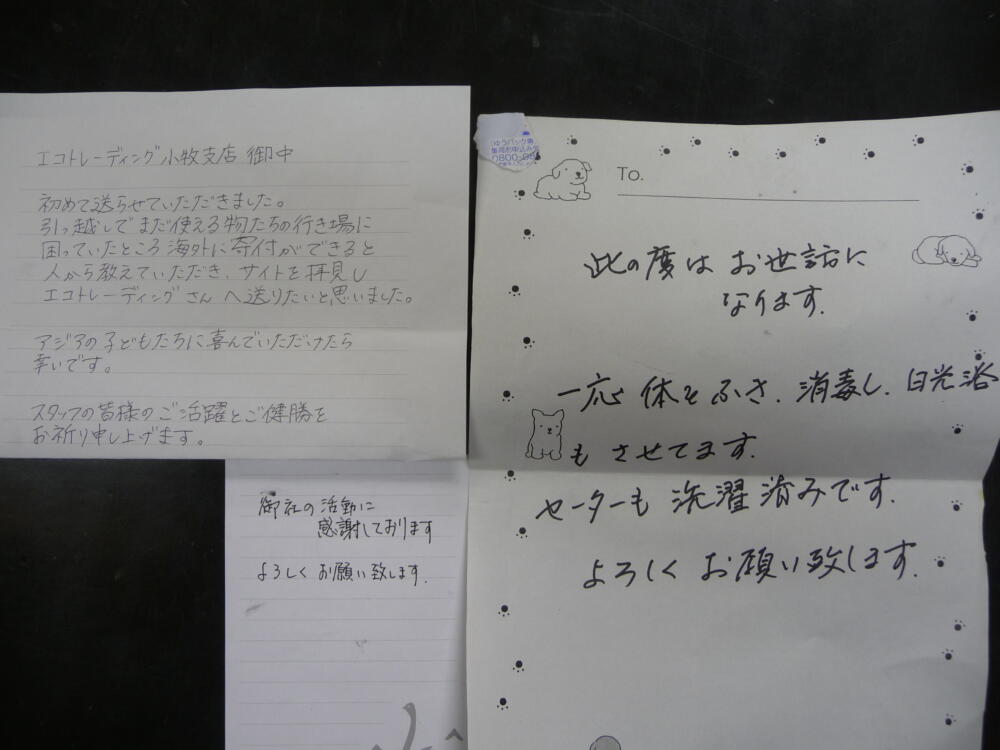 エコトレーディング小牧支店 御中
初めて送らせていただきました。
引っ越しでまだ使える物たちの行き場に
困っていたところ海外に寄付ができると
人から教えていただき、サイトを拝見し
エコトレーディングさんへ送りたいと思いました。
アジアの子どもたちに喜んでいただけたら
幸いです。
スタッフの皆様のご活躍とご健勝を
お祈り申し上げます。
御社の活動に
感謝しております
よろしくお願い致します.
ゆうパック専
集荷お申込み
0800-08
To.
此の度はお世話に
なります.
一応体をふき、消毒し、日光浴
もさせてます.
セーターも洗濯済みです.
よろしくお願い致します.